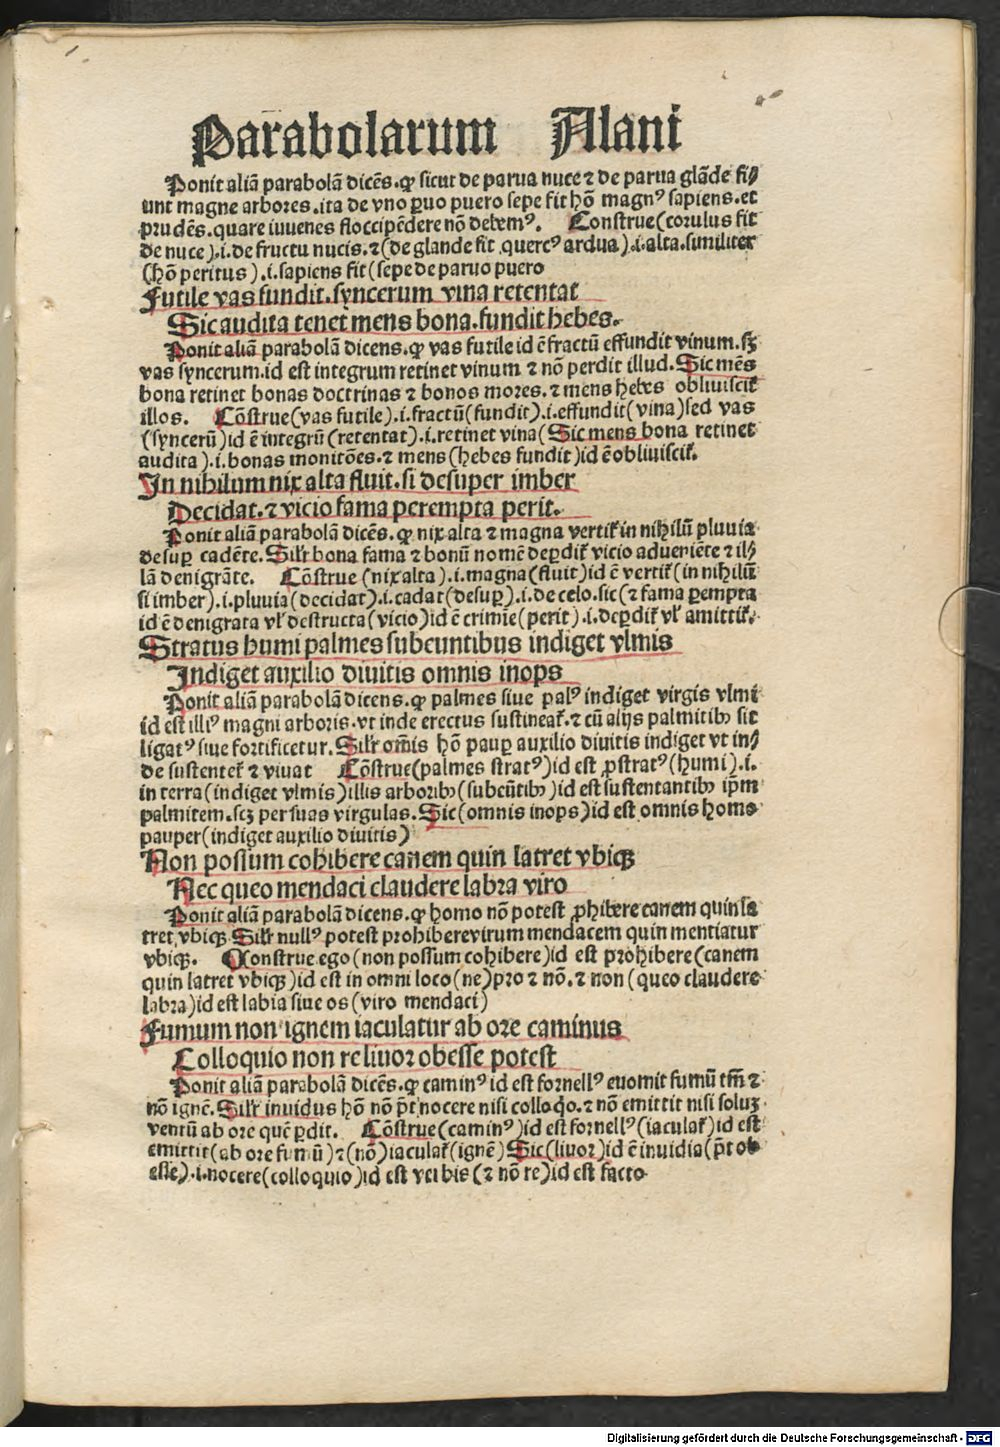 Parabolarum Alani
Ponit aliā parabolā dicēs. ꝙ sicut de parua nuce ⁊ de parua glāde fi⸗
unt magne arbores. ita de vno ꝑuo puero sepe fit hō magnꝰ sapiens. et
prudēs. quare iuuenes floccipēdere nō debemꝰ. Construe (corulus fit
de nuce).i. de fructu nucis. ⁊ (de glande fit quercꝰ ardua).i. alta. similiter
(hō peritus).i. sapiens fit (sepe de paruo puero
Futile vas fundit. syncerum vina retentat
Sic audita tenet mens bona. fundit hebes.
Ponit aliā parabolā dicens. ꝙ vas futile id ē fractū effundit vinum. sꝫ
vas syncerum. id est integrum retinet vinum ⁊ nō perdit illud. Sic mēs
bona retinet bonas doctrinas ⁊ bonos mores. ⁊ mens hebes obliuiscit᷑
illos. Cōstrue (vas futile).i. fractū (fundit).i. effundit (vina) sed vas
(syncerū) id ē integrū (retentat).i. retinet vina (Sic mens bona retinet
audita).i. bonas monitōes. ⁊ mens (hebes fundit) id ē obliuiscit᷑.
In nihilum nix alta fluit. si desuper imber
Decidat. ⁊ vicio fama perempta perit.
Ponit aliā parabolā dicēs. ꝙ nix alta ⁊ magna vertit᷑ in nihilū pluuia
desuꝑ cadēte. Silr̄ bona fama ⁊ bonū nomē deꝑdit᷑ vicio adueniēte ⁊ il⸗
lā denigrāte. Cōstrue (nix alta).i. magna (fluit) id ē vertit᷑ (in nihilū
si imber).i. pluuia (decidat).i. cadat (desuꝑ).i. de celo. sic (⁊ fama ꝑempta
id ē denigrata vl' destructa (vicio) id ē crimīe (perit).i. deꝑdit᷑ vl' amittit᷑.
Stratus humi palmes subeuntibus indiget vlmis
Indiget auxilio diuitis omnis inops
Ponit aliā parabolā dicens. ꝙ palmes siue palꝰ indiget virgis vlmi
id est illiꝰ magni arboris. vt inde erectus sustineat᷑. ⁊ cū alijs palmitibꝫ sit
ligatꝰ siue fortificetur. Silr̄ om̄is hō pauꝑ auxilio diuitis indiget vt in⸗
de sustentet᷑ ⁊ viuat Cōstrue (palmes stratꝰ) id est ꝓstratꝰ (humi).i.
in terra (indiget vlmis) illis arboribꝫ (subeūtibꝫ) id est sustentantibꝫ ip̄m
palmitem. scꝫ per suas virgulas. Sic (omnis inops) id est omnis homo
pauper (indiget auxilio diuitis)
Non possum cohibere canem quin latret vbiqꝫ
Nec queo mendaci claudere labra viro
Ponit aliā parabolā dicens. ꝙ homo nō potest ꝓhibere canem quin la
tret vbiqꝫ. Silr̄ nullꝰ potest prohibere virum mendacem quin mentiatur
vbiqꝫ. Construe ego (non possum cohibere) id est prohibere (canem
quin latret vbiqꝫ) id est in omni loco (ne) pro ⁊ nō. ⁊ non (queo claudere
labra) id est labia siue os (viro mendaci)
Fumum non ignem iaculatur ab ore caminus
Colloquio non re liuor obesse potest
Ponit aliā parabolā dicēs. ꝙ caminꝰ id est fornellꝰ euomit fumū tm̄ ⁊
nō ignē. Silr̄ inuidus hō nō p̄t nocere nisi colloq̄o. ⁊ nō emittit nisi soluꝫ
ventū ab ore quē ꝑdit. Cōstrue (caminꝰ) id est fornellꝰ (iaculat᷑) id est
emittit (ab ore fumū) ⁊ (nō) iaculat᷑ (ignē) Sic (liuor) id ē inuidia (p̄t ob
esse).i. nocere (colloquio) id est verbis (⁊ nō re) id est facto
Digitalisierung gefördert durch die Deutsche Forschungsgemeinschaft - DFG